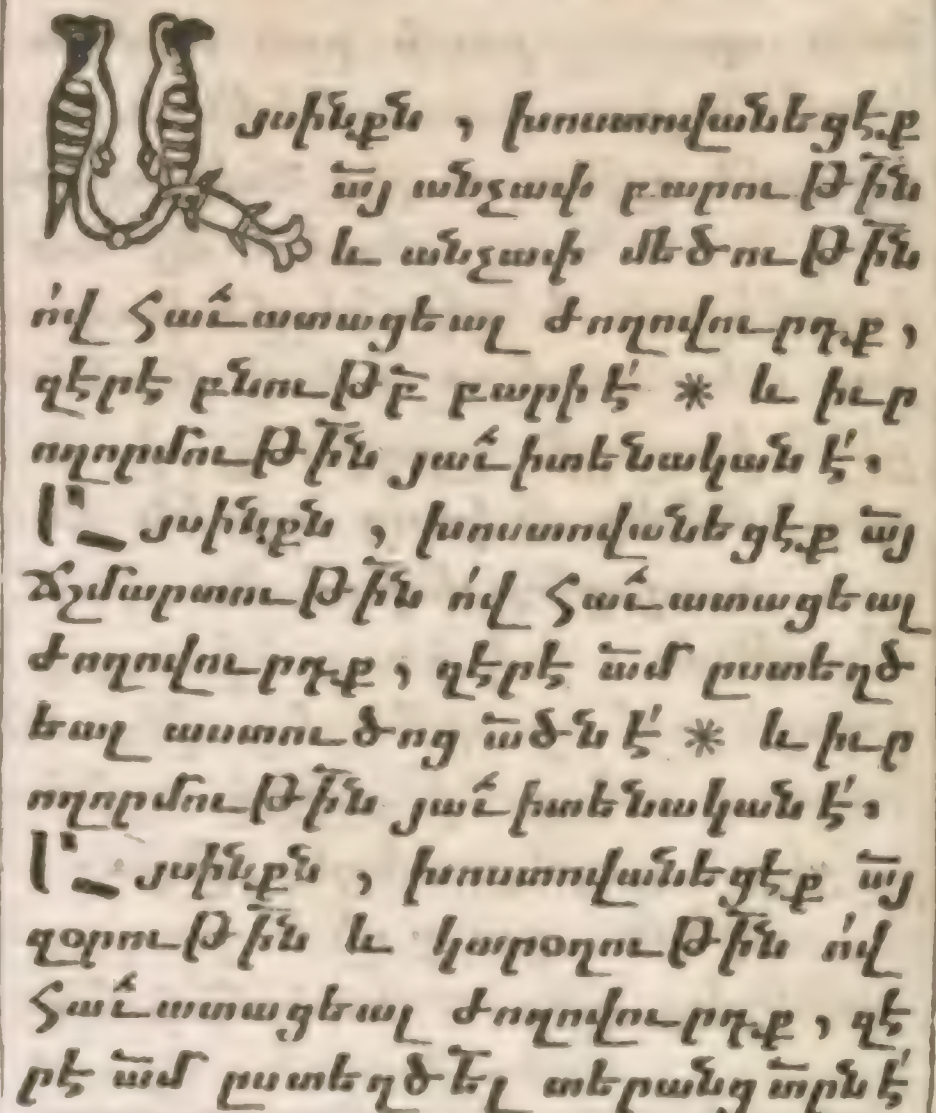 Այսինքն , խոստովանեցէք
ա՟յ անչափ բարութի՟ն
և անչափ մեծութի՟ն
ո՛վ հաւատացեալ ժողովուրդք ,
զէրէ բնութբ՟ բարի է՛ * և իւր
ողորմութի՟ն յաւիտենական է՛.
Այսինքն , խոստովանեցէք ա՟յ
ճշմարտութի՟ն ո՛վ հաւատացեալ
ժողովուրդք , զէրէ ա՟մ ըստեղծ
եալ աստուծոց ա՟ծն է՛ * և իւր
ողորմութի՟ն յաւիտենական է՛.
Այսինքն , խոստովանեցէք ա՟յ
զօրութի՟ն և կարօղութի՟ն ո՛վ
հաւատացեալ ժողովուրդք , զէ
րէ ա՟մ ըստեղծե՟լ տերանց տ՟րն է՛